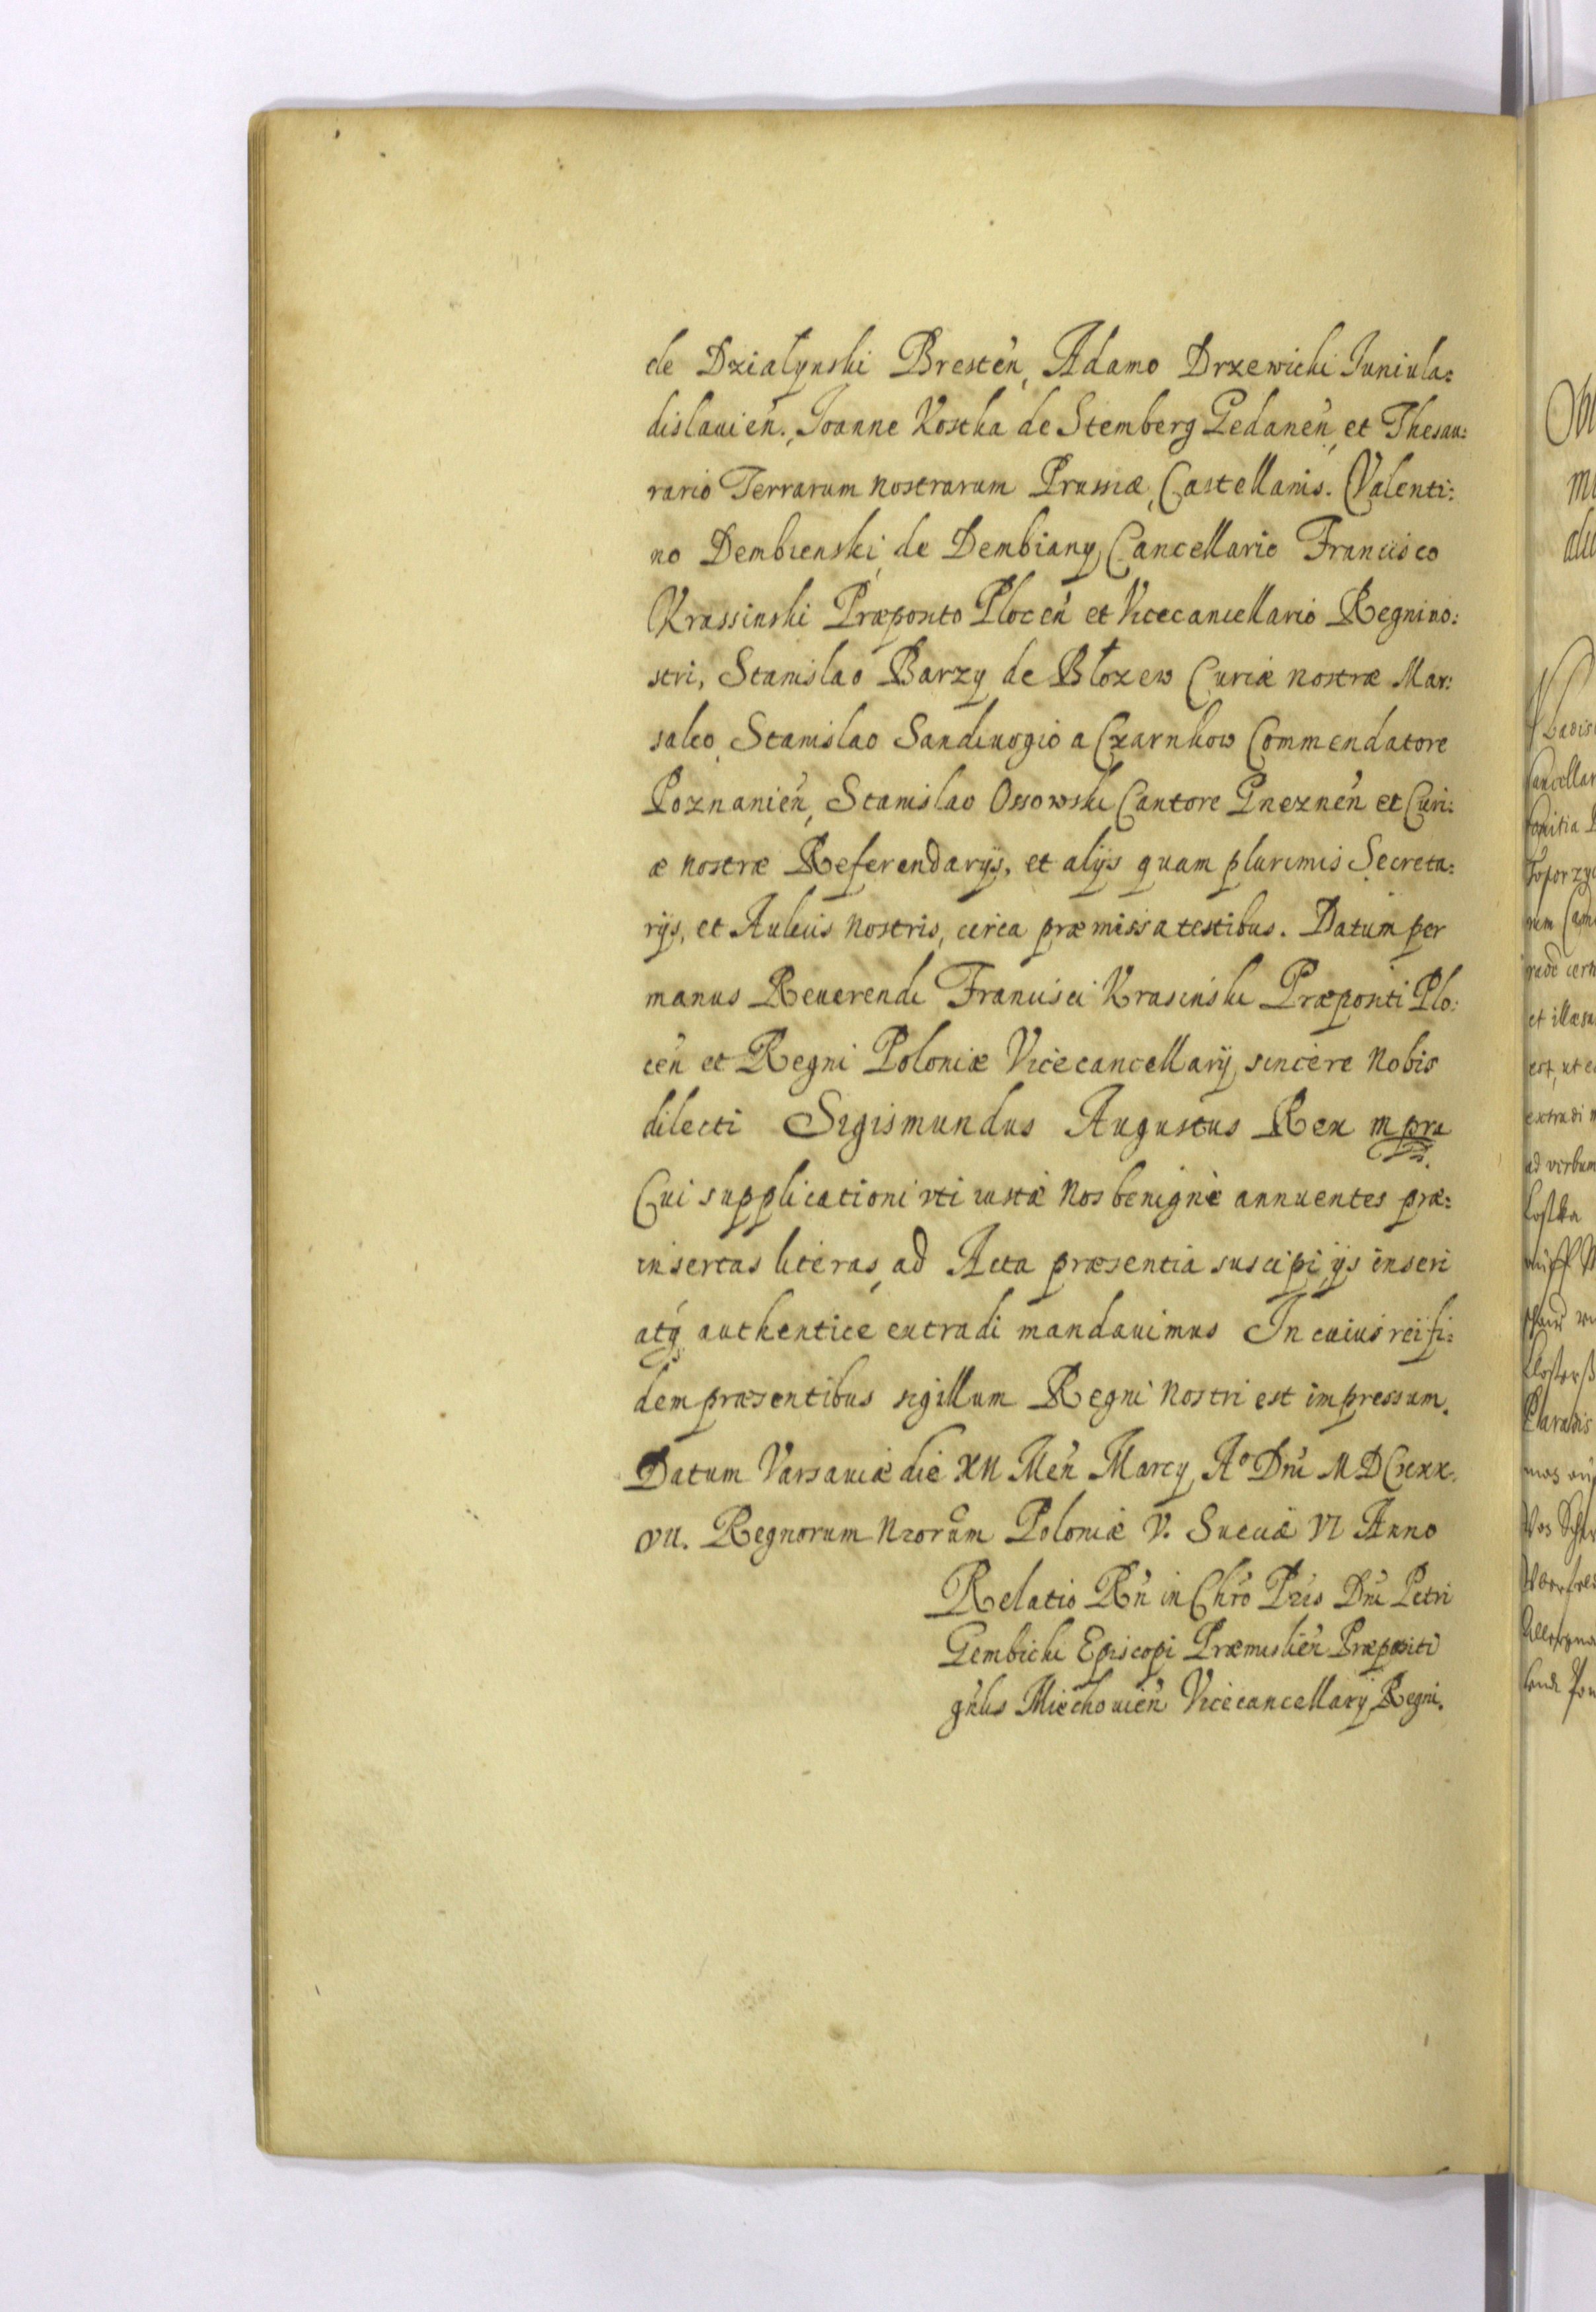 de Działynski Bresteñ, Adamo Drzewicki Juniula=
dislauieñ., Joanne Kostka de Stemberg Gedaneñ, et Thesau=
rario Terrarum nostrarum Prussiæ, Castellanis. Valenti=
no Dembienski, de Dembiany Cancellario Francisco
Krassinski Præposito Ploceñ et Vicecancellario Regni no=
stri, Stanislao Barzy de Błozew Curiæ nostræ Mar=
salco, Stanislao Sandiuogio a Czarnkow Commendatore
Poznanieñ, Stanislao Ossowski Cantore Gnezneñ et Curi=
æ nostræ Referendarijs, et alijs quam plurimis Secreta=
rijs, et Aulicis nostris, circa præmissa testibus. Datum per
manus Reuerendi Francisci Krasinski Præpositi Plo=
ceñ et Regni Poloniæ Vicecancellarij, sincere Nobis
dilecti Sigismundus Augustus Rex mpra
Cui supplicationi vti iustæ Nos benigne annuentes præ=
insertas literas, ad Acta præsentia suscipi, ijs inseri
atq́ authentice extradi mandauimus In cuius rei fi=
dem præsentibus sigillum Regni Nostri est impressum.
Datum Varsauiæ die XII Meñ Marcy, A° Dni MDCxxx
VII. Regnorum Nrorum Poloniæ V. Sueciæ VI Anno
Relatio Rñ in Chro Pris Dni Petri
Gembicki Episcopi Præmislieñ Præpositi
gñlis Miechouieñ Vicecancellarij Regni.